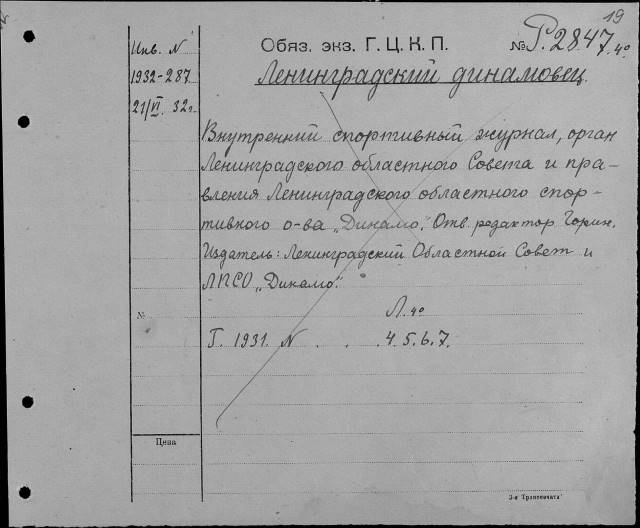 19
Инв. N
1932-287
21/VI 32г.
Обяз. экз. Г. Ц. К. П.
№ Р.2847.4º
Ленинградский динамовец
Внутренний спортивный журнал, орган
Ленинградского областного Совета и пра-
вления Ленинградского областного спор-
тивного о-ва „Динамо". Отв. редактор Горин.
Издатель: Ленинградский Областной Совет и
ЛПСО „Динамо".
№
Л. 4º
Г. 1931. N . . 4. 5. 6. 7.
Цена